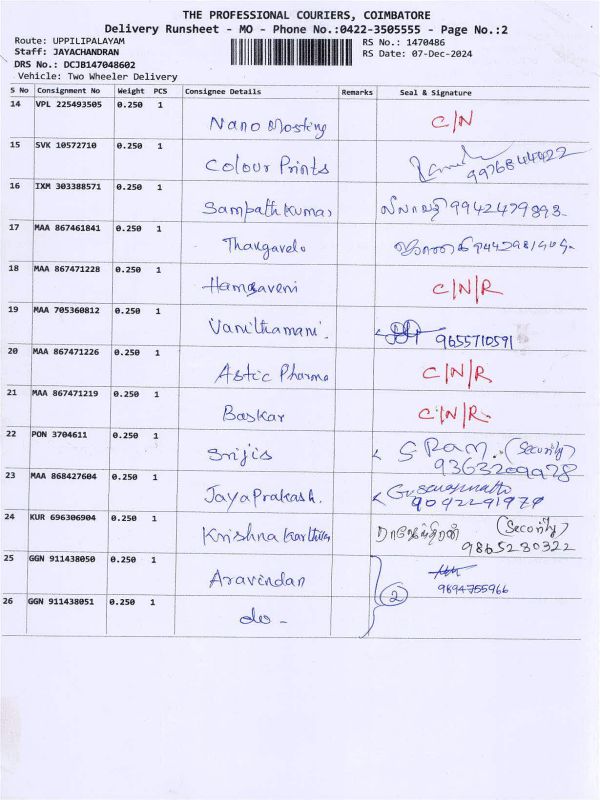 THE PROFESSIONAL COURIERS, COIMBATORE
Delivery Runsheet - MO - Phone No.:0422-3505555 - Page No.:2
Route: UPPILIPALAYAM
RS No.: 1470486
Staff: JAYACHANDRAN
RS Date: 07-Dec-2024
DRS No.: DCJB147048602
Vehicle: Two Wheeler Delivery
S No Consignment No Weight PCS Consignee Details Remarks Seal & Signature
14 VPL 225493505 0.250 1
Nano Hosting C/N
15 SVK 10572710 0.250 1
Colour Prints 9976844422
16 IXM 303388571 0.250 1
Sampath Kumar 9942479893
17 MAA 867461841 0.250 1
Thangavelu
18 MAA 867471228 0.250 1
Hamsaveni C/N/R
19 MAA 705360812 0.250 1
Vanithamani 9655710591
20 MAA 867471226 0.250 1
Astic Pharma C/N/R
21 MAA 867471219 0.250 1
Baskar C/N/R
22 PON 3704611 0.250 1
Srijis S Ram. (Security)
9363209978
23 MAA 868427604 0.250 1
JayaPrakash.
9042291979
24 KUR 696306904 0.250 1
Krishna Karthik (Security)
9865230322
25 GGN 911438050 0.250 1
Aravindan 2
9894755966
26 GGN 911438051 0.250 1
do -